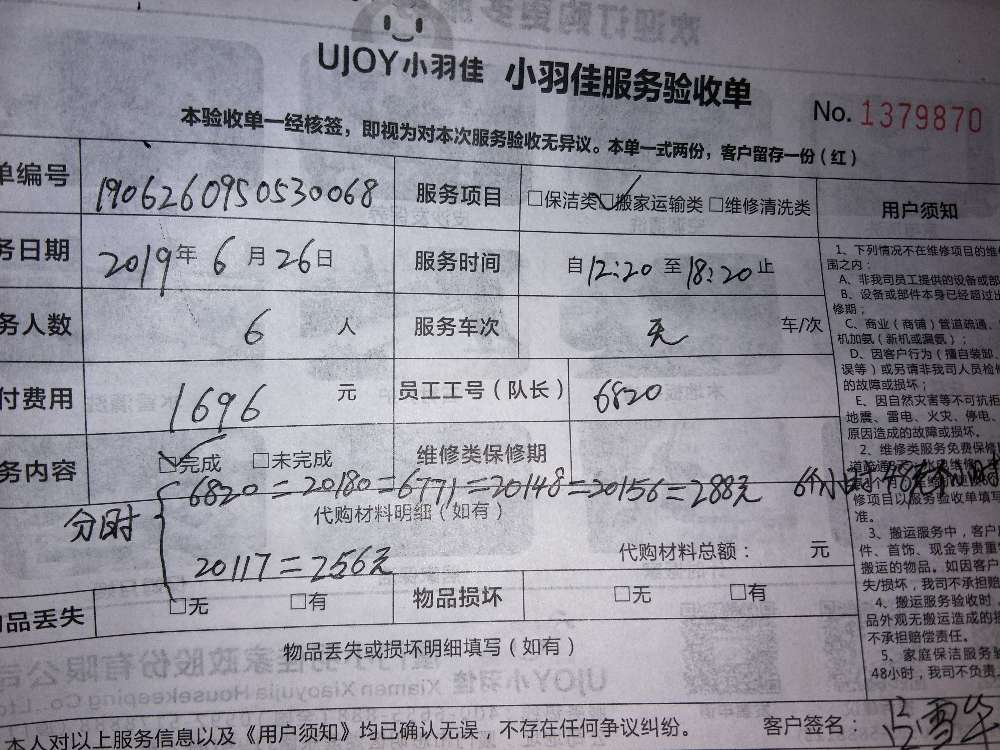 UJOY小羽佳 小羽佳服务验收单
No. 1379870
本验收单一经核签，即视为对本次服务验收无异议。本单一式两份，客户留存一份（红）
单编号 1906260950530068 服务项目 □保洁类 □搬家运输类 □维修清洗类 用户须知
务日期 2019年6月26日 服务时间 自12:20至18:20止
务人数 6人 服务车次 无 车/次
付费用 1696元 员工工号（队长） 6820
务内容 □完成 □未完成 维修类保修期
分时 6820=20180=6771=20148=20156=288元 6个小时
代购材料明细（如有）
20117=256元 代购材料总额： 元
品丢失 □无 □有 物品损坏 □无 □有
物品丢失或损坏明细填写（如有）
本人对以上服务信息以及《用户须知》均已确认无误，不存在任何争议纠纷。 客户签名：
1、下列情况不在维修项目的维
围之内：
A、非我司员工提供的设备或部
B、设备或部件本身已经超过
修期；
C、商业（商铺）管道疏通、
机加氨（新机或漏氨）；
D、因客户行为（擅自装卸、
误等）或另请非我司人员检修
的故障或损坏；
E、因自然灾害等不可抗拒
地震、雷电、火灾、停电、
原因造成的故障或损坏。
2、维修类服务免费保修
修项目以服务验收单填写
准。
3、搬运服务中，客户
件、首饰、现金等贵重
搬运的物品。如因客户
失/损坏，我司不承担赔
4、搬运服务验收时，
品外观无搬运造成的损
不承担赔偿责任。
5、家庭保洁服务验
48小时，我司不负责